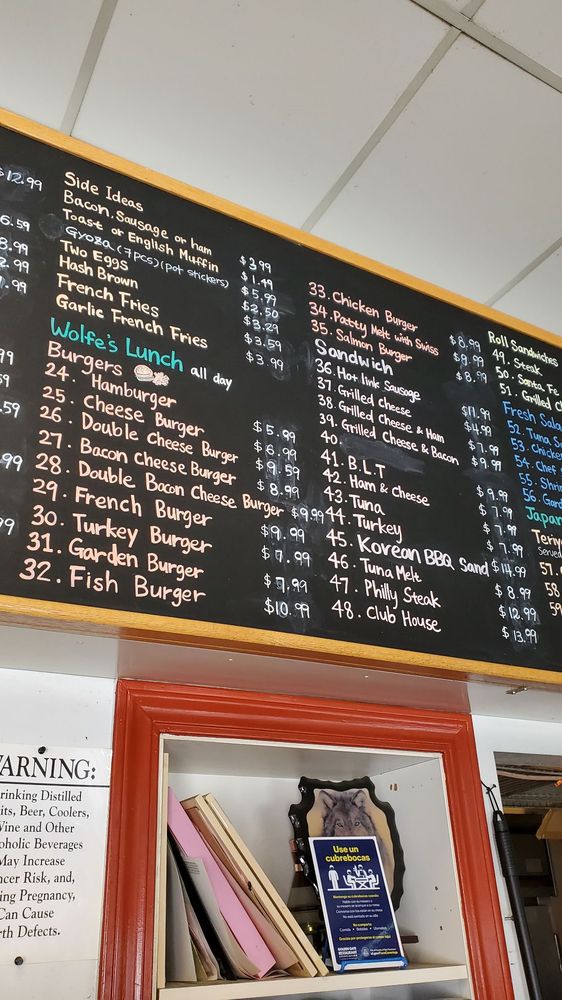 $12.99
6.59
8.99
2.99
7.99
Side Ideas
Bacon, Sausage or ham $3.99
Toast or English Muffin $1.49
Gyoza (7pcs)(pot stickers) $5.99
Two Eggs $2.50
Hash Brown $3.29
French Fries $3.59
Garlic French Fries $3.99
Wolfe's Lunch all day
Burgers
24. Hamburger $5.99
25. Cheese Burger $6.99
26. Double Cheese Burger $9.59
27. Bacon Cheese Burger $8.99
28. Double Bacon Cheese Burger $9.99
29. French Burger $9.99
30. Turkey Burger $7.99
31. Garden Burger $7.99
32. Fish Burger $10.99
33. Chicken Burger $8.99
34. Patty Melt with Swiss $9.99
35. Salmon Burger $8.99
Sandwich
36. Hot link Sausage $11.99
37. Grilled Cheese
38. Grilled Cheese & Ham $7.99
39. Grilled Cheese & Bacon $9.99
40.
41. B.L.T $9.99
42. Ham & Cheese $7.99
43. Tuna $7.99
44. Turkey $7.99
45. Korean BBQ Sand $14.99
46. Tuna Melt $8.99
47. Philly Steak $12.99
48. Club House $13.99
Roll Sandwiches
49. Steak
50. Santa Fe
51. Grilled
Fresh
52. Tuna
53. Chicken
54. Chef
55.
56.
Served
57.
58
59
WARNING:
Drinking Distilled
Spirits, Beer, Coolers,
Wine and Other
Alcoholic Beverages
May Increase
Cancer Risk, and,
During Pregnancy,
Can Cause
Birth Defects.
Use un
cubrebocas